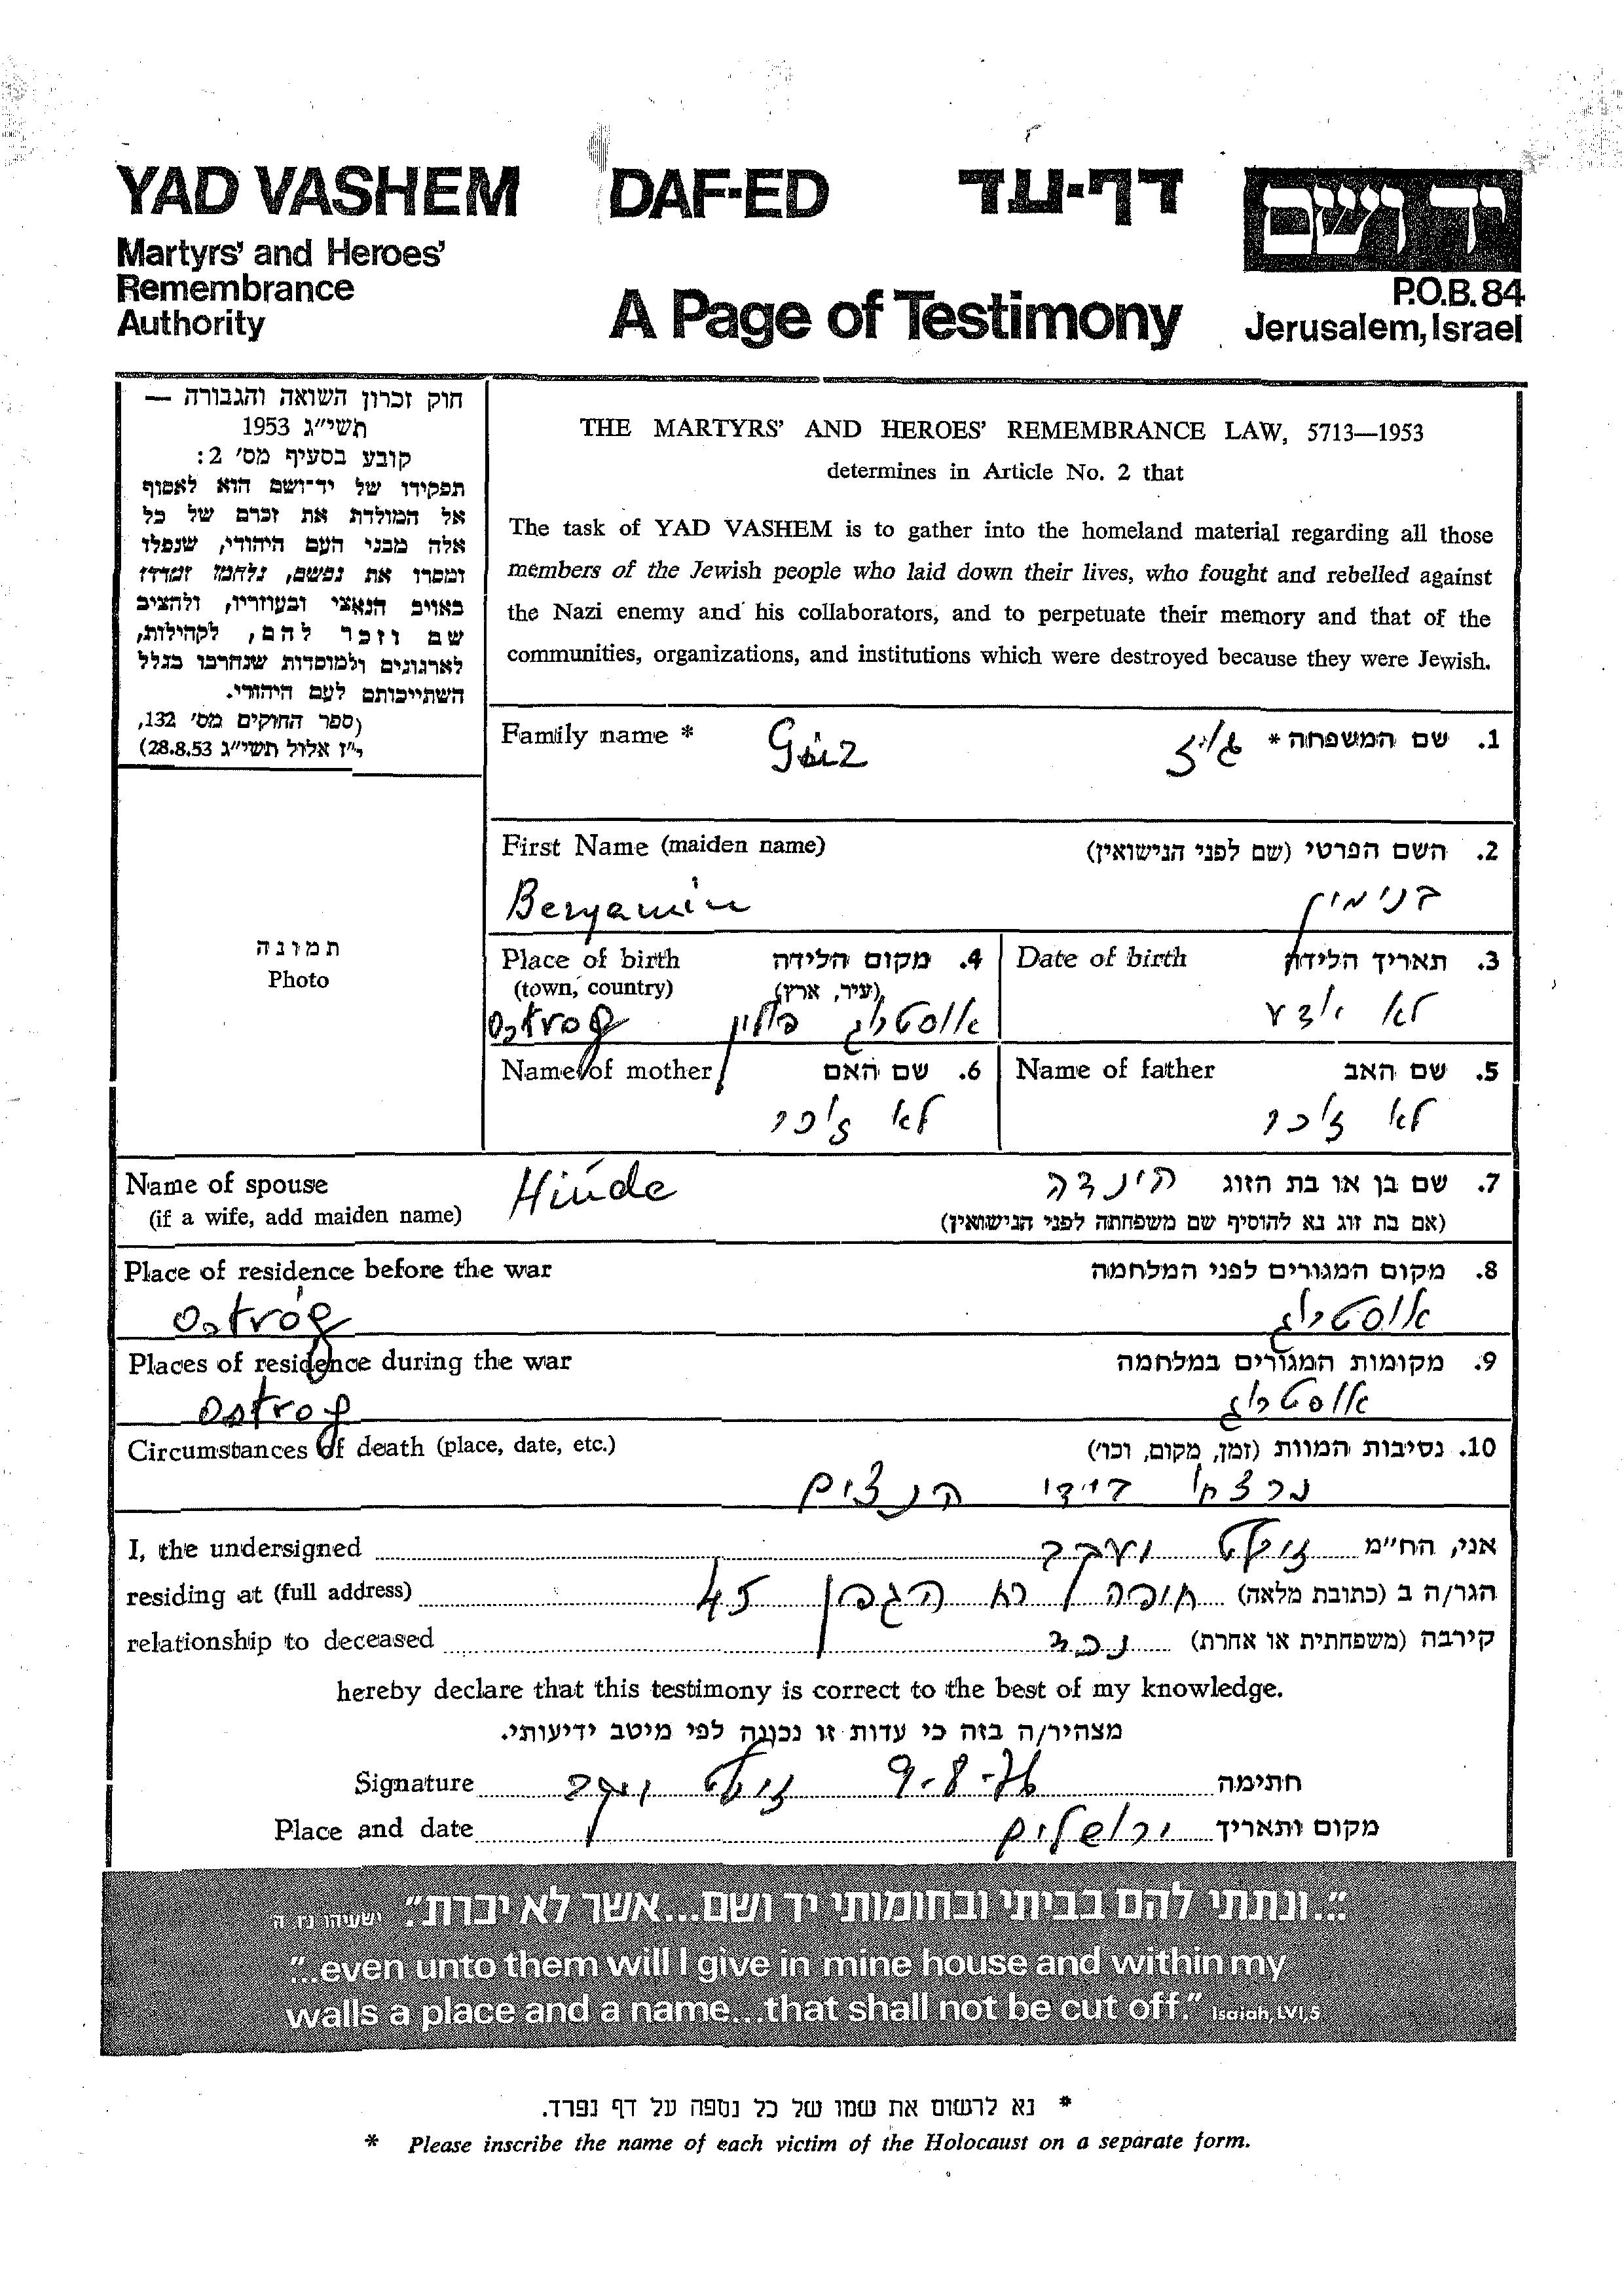 YAD VASHEM DAF-ED דף-עד יד ושם
Martyrs' and Heroes'
Remembrance
Authority
A Page of Testimony
P.O.B. 84
Jerusalem, Israel
חוק זכרון השואה והגבורה —
תשי״ג 1953
קובע בסעיף מס׳ 2:
תפקידו של יד־ושם הוא לאסוף
אל המולדת את זכרם של כל
אלה מבני העם היהודי, שנפלו
ומסרו את נפשם, נלחמו ומרדו
באויב הנאצי ובעוזריו, ולהציב
שם וזכר להם, לקהילות,
לארגונים ולמוסדות שנחרבו בגלל
השתייכותם לעם היהודי.
(ספר החוקים מס׳ 132,
י״ז אלול תשי״ג 28.8.53)
תמונה
Photo
THE MARTYRS' AND HEROES' REMEMBRANCE LAW, 5713—1953
determines in Article No. 2 that
The task of YAD VASHEM is to gather into the homeland material regarding all those
members of the Jewish people who laid down their lives, who fought and rebelled against
the Nazi enemy and his collaborators, and to perpetuate their memory and that of the
communities, organizations, and institutions which were destroyed because they were Jewish.
Family name * 1. שם המשפחה *
First Name (maiden name) 2. השם הפרטי (שם לפני הנישואין)
Benyamin בנימין
Place of birth 4. מקום הלידה
(town, country) (עיר, ארץ)
Ostrog אוסטרוג פולין
Date of birth 3. תאריך הלידה
לא ידע
Name of mother 6. שם האם
לא זוכר
Name of father 5. שם האב
לא זוכר
Name of spouse Hinde 7. שם בן או בת הזוג הינדה
(if a wife, add maiden name) (אם בת זוג נא להוסיף שם משפחתה לפני הנישואין)
Place of residence before the war 8. מקום המגורים לפני המלחמה
Ostrog אוסטרוג
Places of residence during the war 9. מקומות המגורים במלחמה
Ostrog אוסטרוג
Circumstances of death (place, date, etc.) 10. נסיבות המוות (זמן, מקום, וכו׳)
נרצח בידי הנצים
I, the undersigned אני, החי״מ יעקב
residing at (full address) הגר/ה ב (כתובת מלאה) חיפה הגפן 45
relationship to deceased קירבה (משפחתית או אחרת) נכד
hereby declare that this testimony is correct to the best of my knowledge.
מצהיר/ה בזה כי עדות זו נכונה לפי מיטב ידיעותי.
Signature יעקב 9-8-76 חתימה
Place and date ירושלים מקום ותאריך
"...ונתתי להם בביתי ובחומותי יד ושם...אשר לא יכרת." ישעיהו נו ה
"...even unto them will I give in mine house and within my
walls a place and a name...that shall not be cut off." Isaiah, LVI,5
* נא לרשום את שמו של כל נספה על דף נפרד.
* Please inscribe the name of each victim of the Holocaust on a separate form.